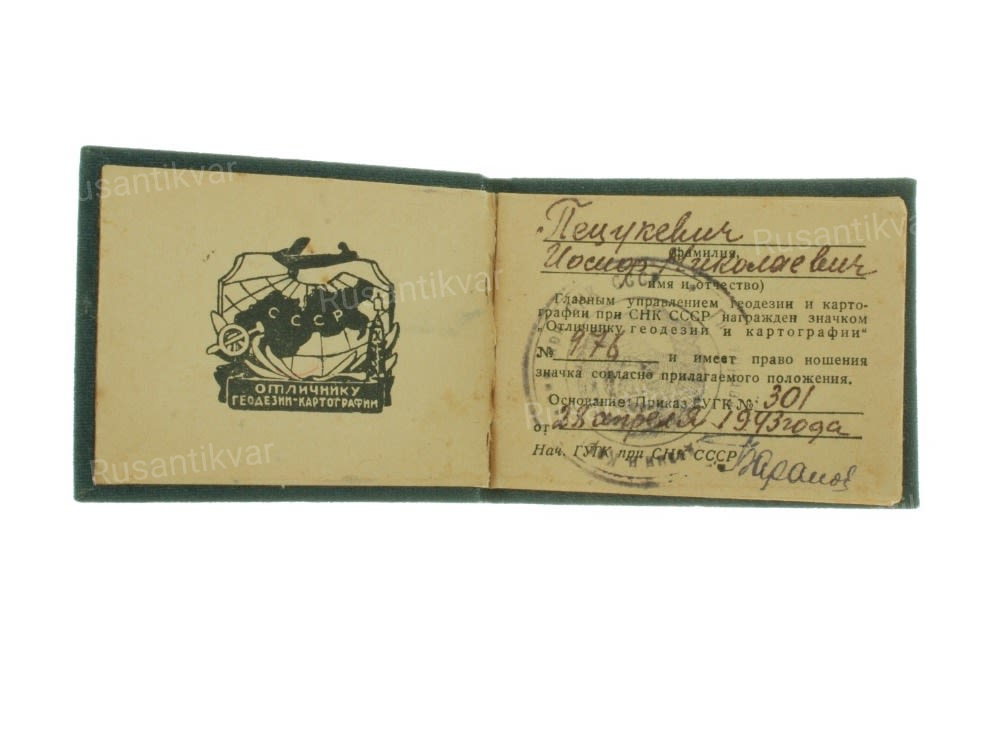 СССР
ОТЛИЧНИКУ
ГЕОДЕЗИИ-КАРТОГРАФИИ
Пецукевич
(фамилия,
Иосиф Николаевич
имя и отчество)
Главным управлением геодезии и карто-
графии при СНК СССР награжден значком
„Отличнику геодезии и картографии“
№ 976 и имеет право ношения
значка согласно прилагаемого положения.
Основание: Приказ ГУГК № 301
от 28 апреля 1943 года
Нач. ГУГК при СНК СССР Баранов
Rusantikvar
Rusantikvar
Rusantikvar
Rusantikvar
Rusantikvar